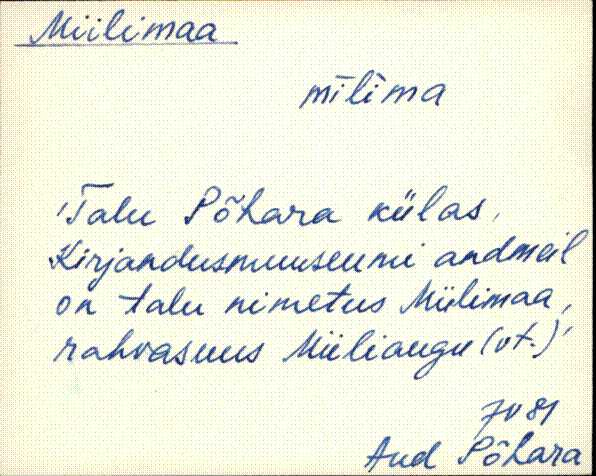 Miilimaa
mīlima
'Talu Põhara külas,
Kirjandusmuuseumi andmeil
on talu nimetus Miilimaa,
rahvasuus Miiliaugu (vt.)'
JV 81
Aud Põhara